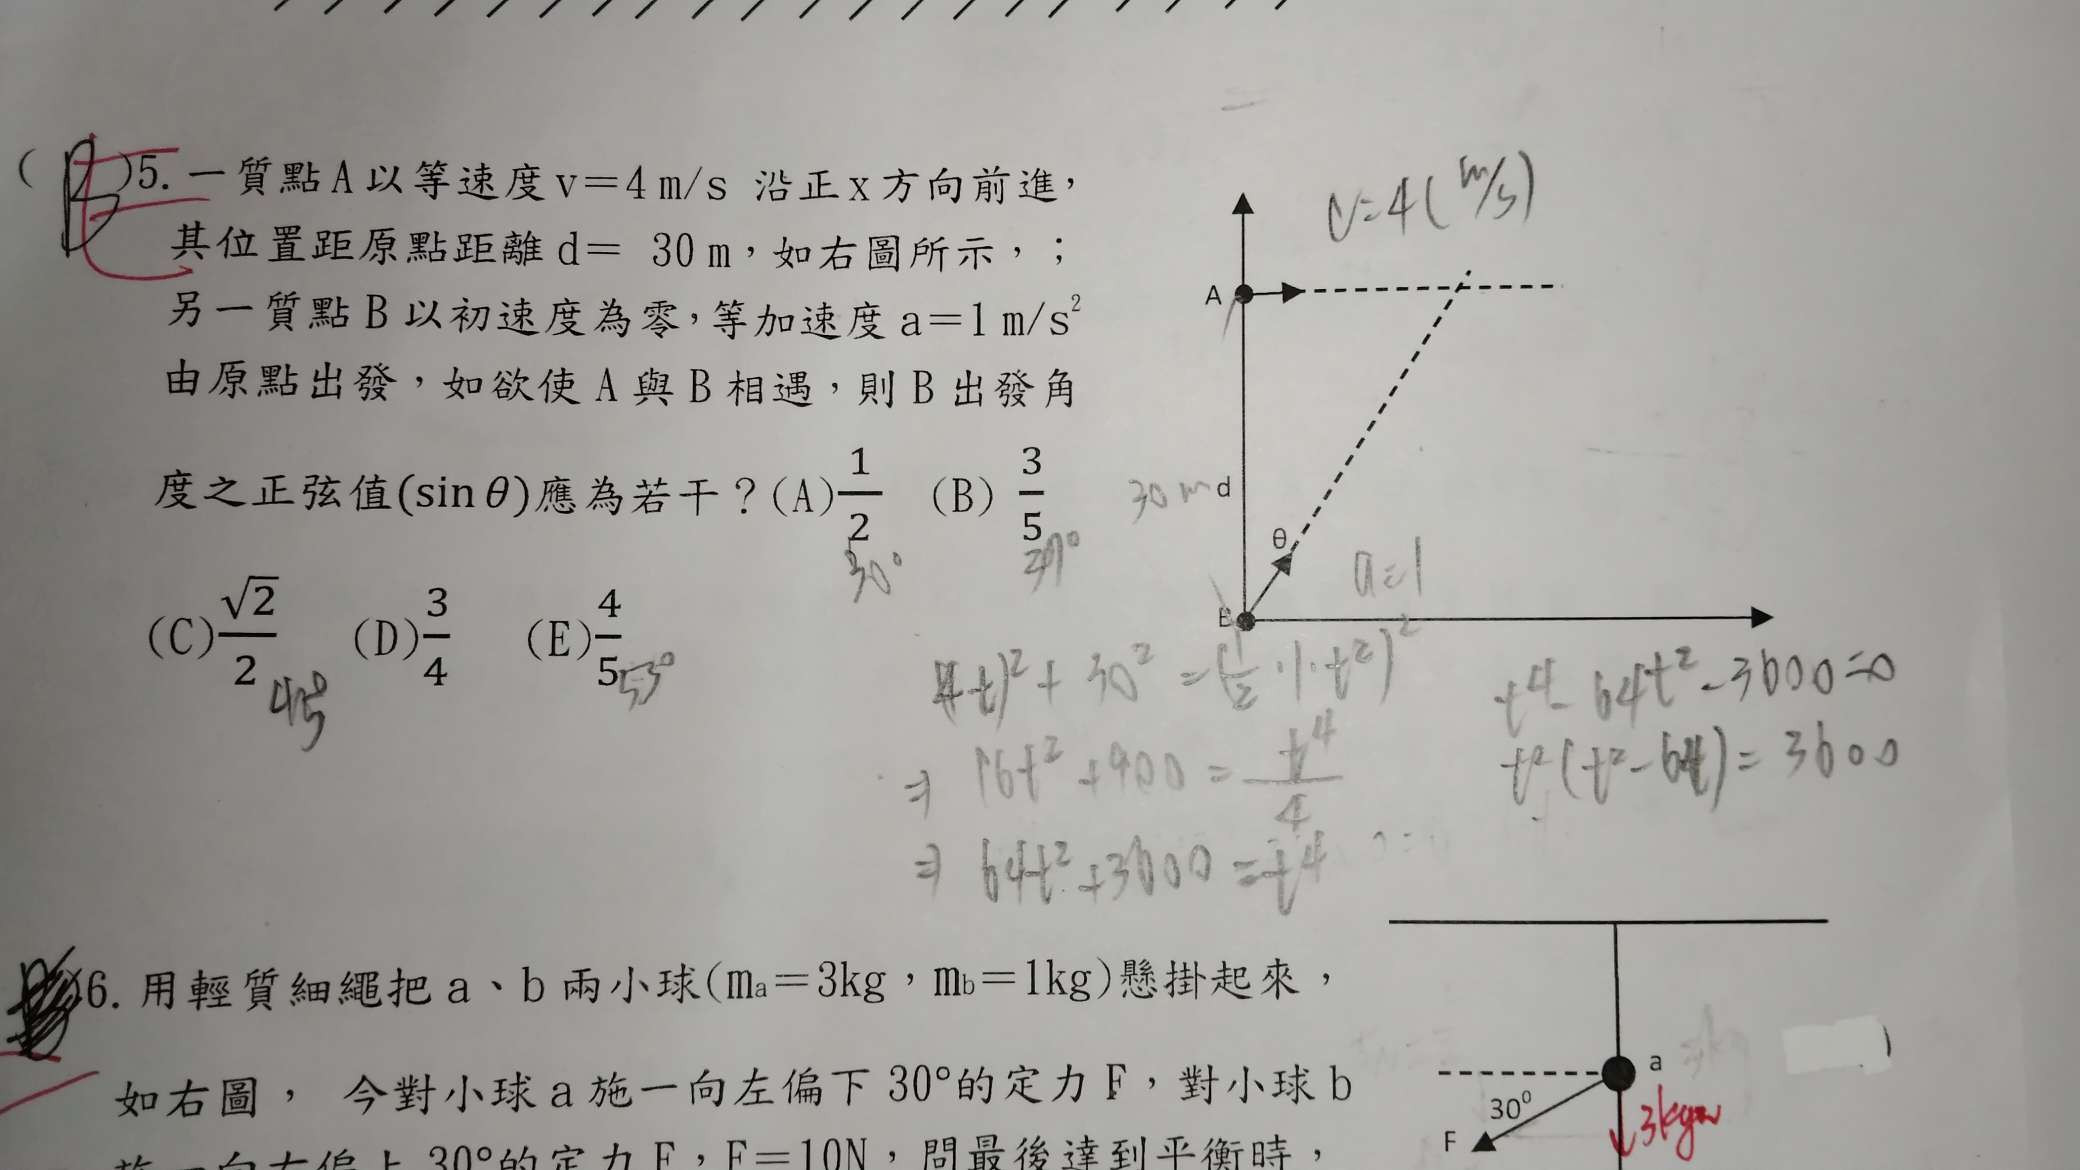 (B)5. 一質點A以等速度v=4 m/s 沿正x方向前進，
其位置距原點距離d= 30 m，如右圖所示，；
另一質點B以初速度為零，等加速度a=1 m/s²
由原點出發，如欲使A與B相遇，則B出發角
度之正弦值(sin θ)應為若干？(A)1/2 (B) 3/5
30° 37°
(C)√2/2 (D)3/4 (E)4/5
45° 53°
v=4(m/s)
A
30m d
θ
a=1
B
(4t)²+30²=(1/2·1·t²)²
⇒ 16t²+900=t⁴/4
⇒ 64t²+3600=t⁴
t⁴-64t²-3600=0
t²(t²-64)=3600
6. 用輕質細繩把a、b兩小球(ma=3kg，mb=1kg)懸掛起來，
如右圖， 今對小球a施一向左偏下30°的定力F，對小球b
施一向右偏上30°的定力F，F=10N，問最後達到平衡時，
a
30⁰
3kgw
F